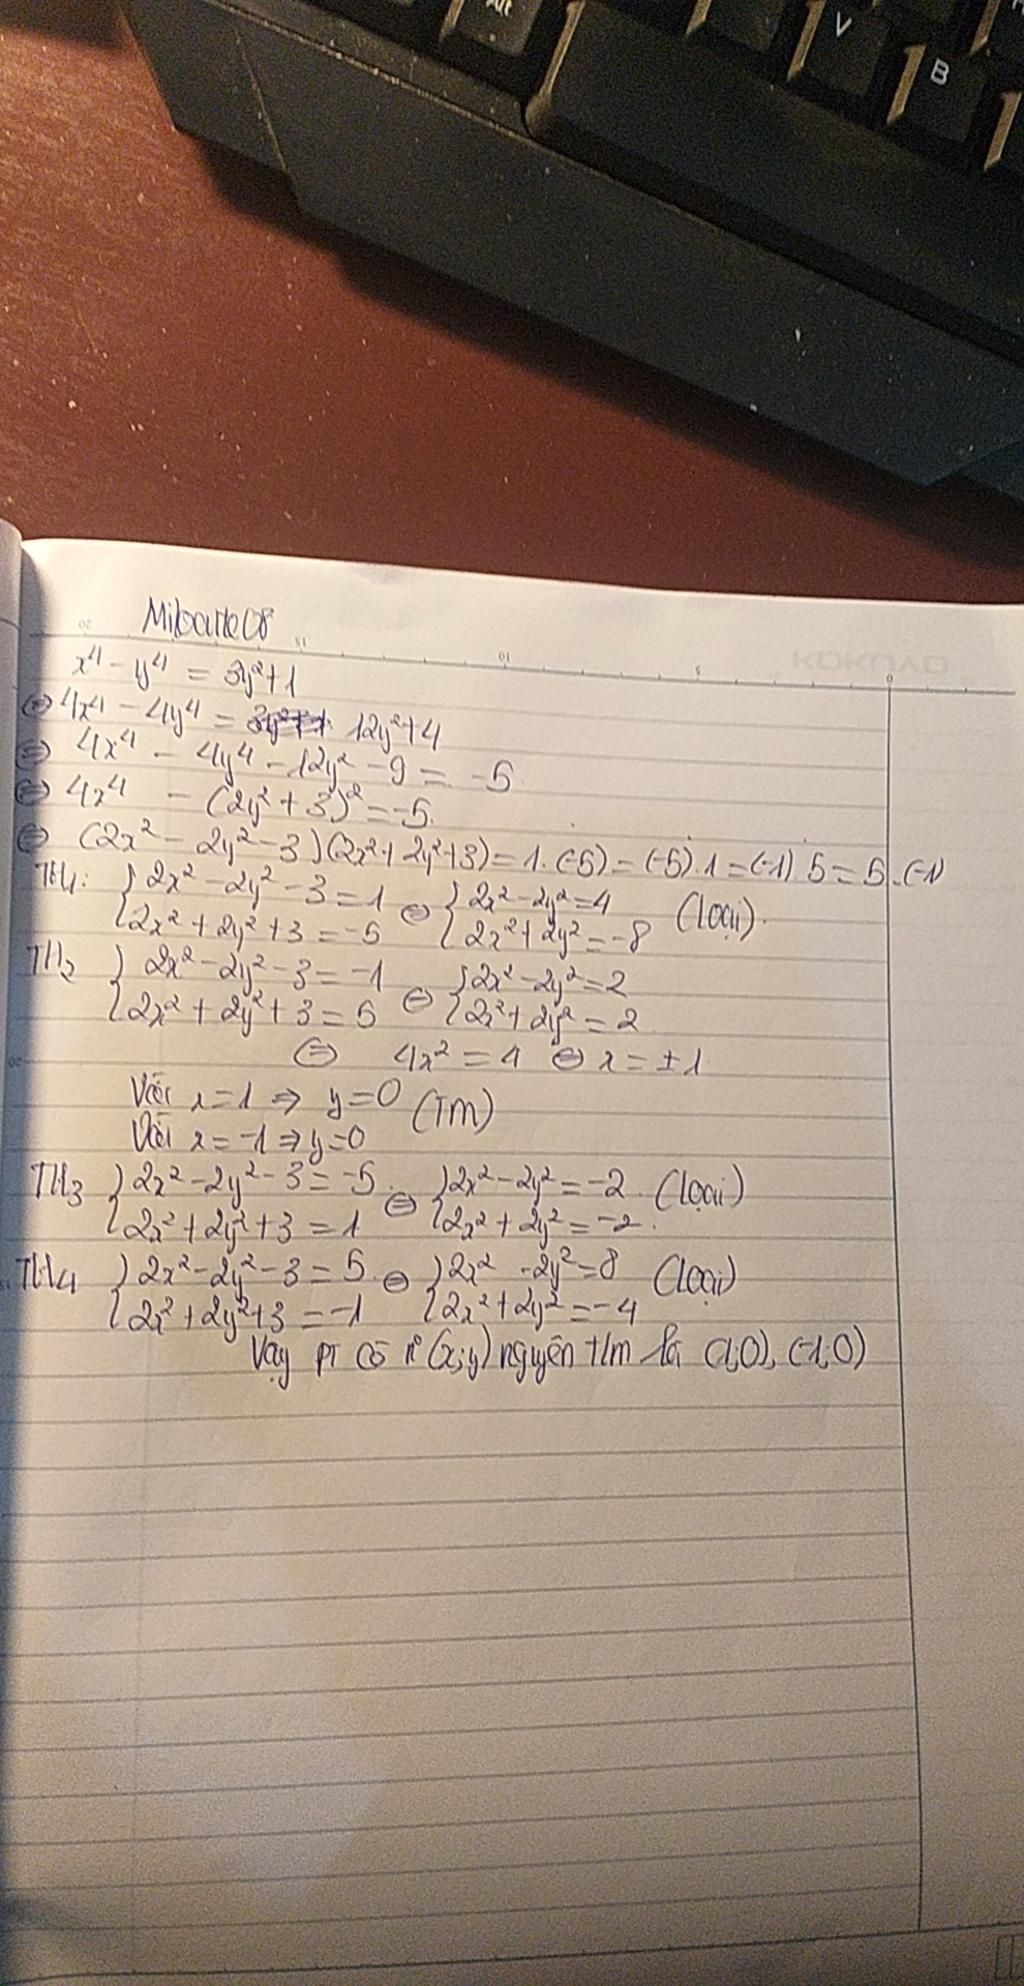 Alt
V
B
Mibanko8
x⁴ - y⁴ = 3y² + 1
⇔ 4x⁴ - 4y⁴ = 12y² + 4
⇔ 4x⁴ - 4y⁴ - 12y² - 9 = -5
⇔ 4x⁴ - (2y² + 3)² = -5
⇔ (2x² - 2y² - 3)(2x² + 2y² + 3) = 1.(-5) = (-5).1 = (-1).5 = 5.(-1)
TH1: { 2x² - 2y² - 3 = 1 ⇔ { 2x² - 2y² = 4 (loại).
{ 2x² + 2y² + 3 = -5 { 2x² + 2y² = -8
TH2 { 2x² - 2y² - 3 = -1 ⇔ { 2x² - 2y² = 2
{ 2x² + 2y² + 3 = 5 { 2x² + 2y² = 2
⇔ 4x² = 4 ⇔ x = ±1
Với x = 1 ⇒ y = 0 (TM)
Với x = -1 ⇒ y = 0
TH3 { 2x² - 2y² - 3 = -5 ⇔ { 2x² - 2y² = -2 (loại)
{ 2x² + 2y² + 3 = 1 { 2x² + 2y² = -2
TH4 { 2x² - 2y² - 3 = 5 ⇔ { 2x² - 2y² = 8 (loại)
{ 2x² + 2y² + 3 = -1 { 2x² + 2y² = -4
Vậy PT có n° (x;y) nguyên t/m là (1;0), (-1;0)